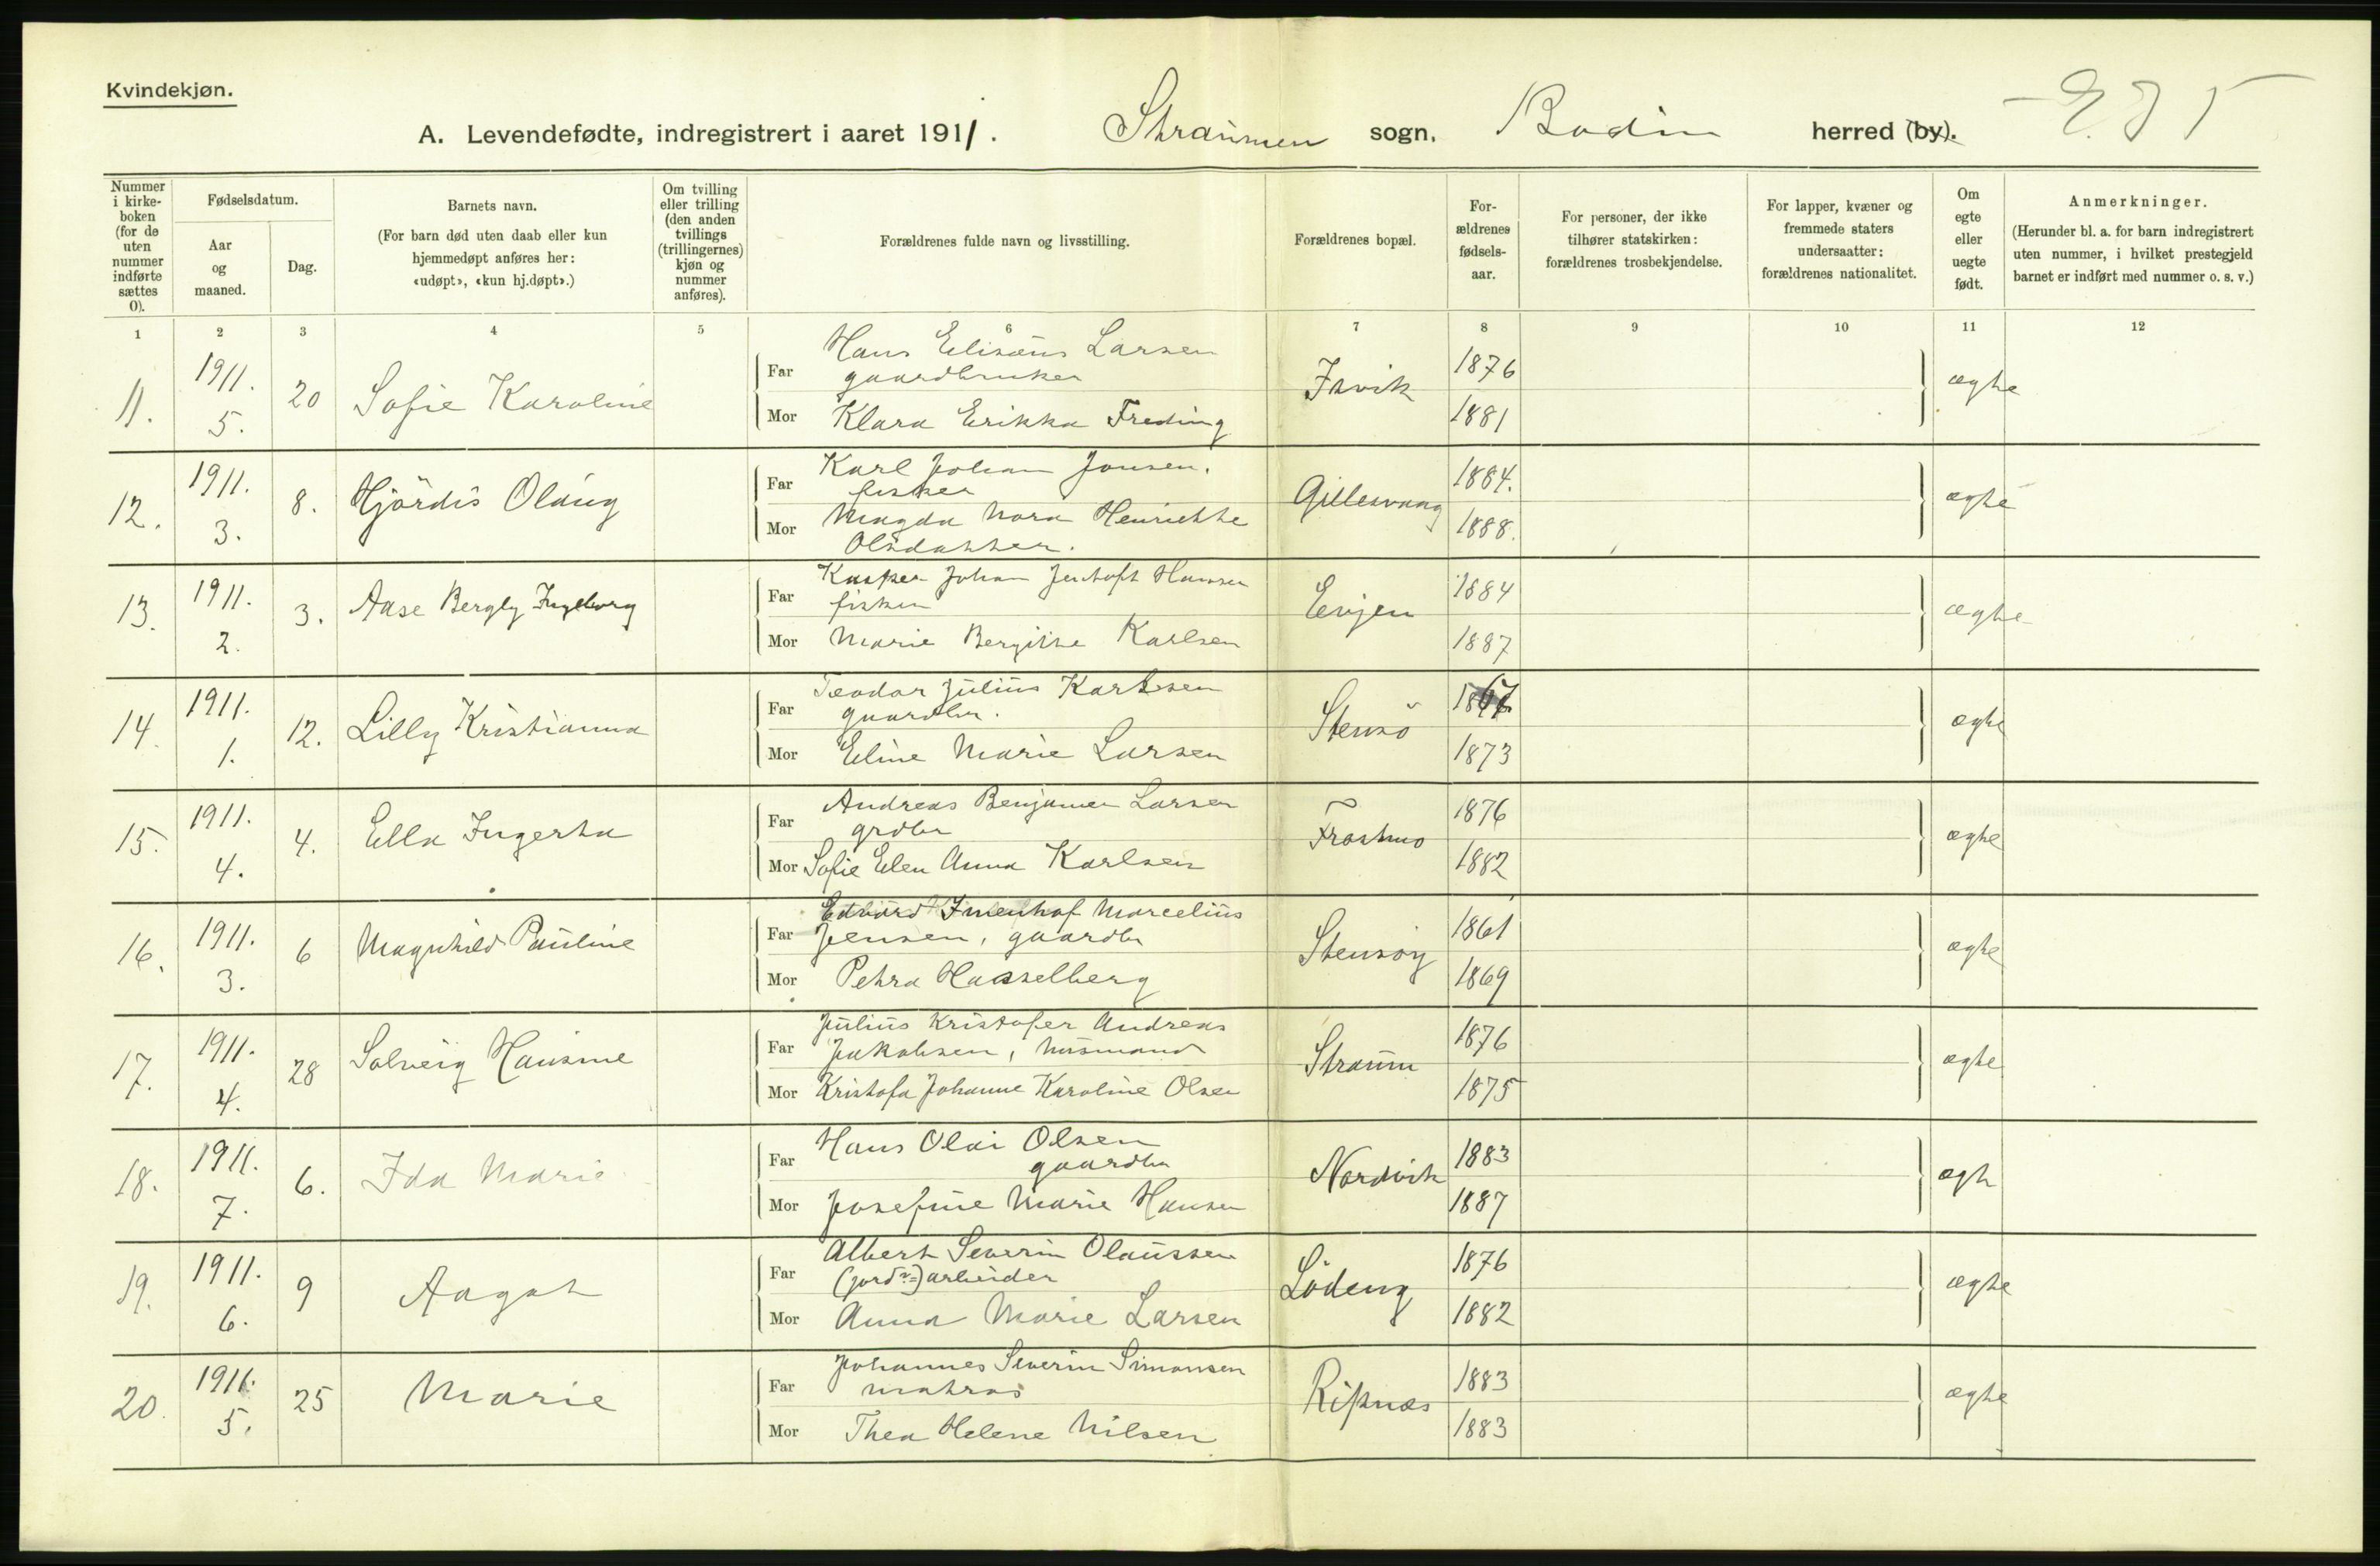 Kvindekjøn.
A. Levendefødte, indregistrert i aaret 1911. Straumen sogn. Bodin herred (by).
Nummer i kirkeboken (for de uten nummer indførte sættes 0).
Fødselsdatum.
Aar og maaned.
Dag.
Barnets navn.
(For barn død uten daab eller kun hjemmedøpt anføres her: «udøpt», «kun hj.døpt».)
Om tvilling eller trilling (den anden tvillings (trillingernes) kjøn og nummer anføres).
Forældrenes fulde navn og livsstilling.
Forældrenes bopæl.
For-ældrenes fødsels-aar.
For personer, der ikke tilhører statskirken: forældrenes trosbekjendelse.
For lapper, kvæner og fremmede staters undersaatter: forældrenes nationalitet.
Om egte eller uegte født.
Anmerkninger.
(Herunder bl. a. for barn indregistrert uten nummer, i hvilket prestegjeld barnet er indført med nummer o. s. v.)
1 2 3 4 5 6 7 8 9 10 11 12
11. 1911. 5. 20 Sofie Karoline
Far Hans Elisæus Larsen
gaardbruker
Mor Klara Erikka Freding
Isvik 1876 1881 ægte
12. 1911. 3. 8. Hjördis Olaug
Far Karl Johan Jonsen.
fisker
Mor Magda Nora Henriette
Olsdatter.
Gillesvaag 1884. 1888. ægte
13. 1911. 2. 3. Aase Bergly Ingeborg
Far Kasper Johan Jentoft Hansen
fisker
Mor Marie Bergitte Karlsen
Evjen 1884 1887 ægte
14. 1911. 1. 12. Lilly Kristianna
Far Teodor Julius Karlsen
gaardbr.
Mor Eline Marie Larsen
Stensö 1867 1873 ægte
15. 1911. 4. 4. Ella Ingerta
Far Andreas Benjamin Larsen
grdbr
Mor Sofie Elen Anna Karlsen
Frostmo 1876 1882 ægte
16. 1911. 3. 6 Magnhild Pauline
Far Edvard Imenhof Marcelius
Jensen, gaardbr
Mor Petra Hasselberg
Stensöy 1861 1869 ægte
17. 1911. 4. 28 Solveig Hansine
Far Julius Kristofer Andreas
Jakobsen, husmand
Mor Kristofa Johanne Karoline Olsen
Straum 1876 1875 ægte
18. 1911. 7. 6. Ida Marie
Far Hans Olai Olsen
gaardbr
Mor Josefine Marie Hansen
Nordvik 1883 1887 ægt
19. 1911. 6. 9 Aagot
Far Albert Severin Olaussen
(jord?=) arbeider
Mor Anna Marie Larsen
Lödeng 1876 1882 ægte
20. 1911. 5. 25 Marie
Far Johannes Severin Simonsen
matros
Mor Thea Helene Nilsen
Ripnes 1883 1883 ægte